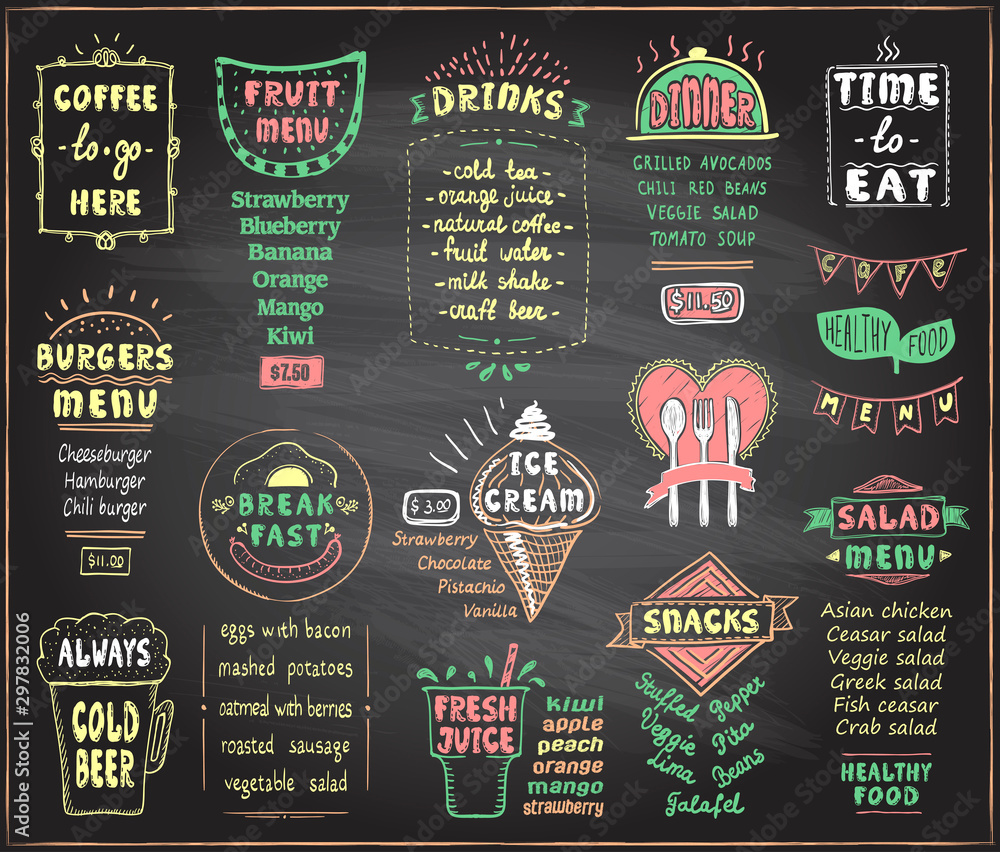 COFFEE
-to-go-
HERE
FRUIT
MENU
Strawberry
Blueberry
Banana
Orange
Mango
Kiwi
$7.50
DRINKS
-cold tea-
-orange juice-
-natural coffee-
-fruit water-
-milk shake-
-craft beer-
DINNER
GRILLED AVOCADOS
CHILI RED BEANS
VEGGIE SALAD
TOMATO SOUP
$11.50
TIME
-to-
EAT
CAFE
HEALTHY FOOD
MENU
BURGERS
MENU
Cheeseburger
Hamburger
Chili burger
$11.00
BREAK
FAST
eggs with bacon
mashed potatoes
oatmeal with berries
roasted sausage
vegetable salad
ICE
CREAM
$3.00
Strawberry
Chocolate
Pistachio
Vanilla
SALAD
MENU
Asian chicken
Ceasar salad
Veggie salad
Greek salad
Fish ceasar
Crab salad
HEALTHY
FOOD
ALWAYS
COLD
BEER
FRESH
JUICE
kiwi
apple
peach
orange
mango
strawberry
SNACKS
Stuffed Pepper
Veggie Pita
Lima Beans
Falafel
Adobe Stock | #297832006